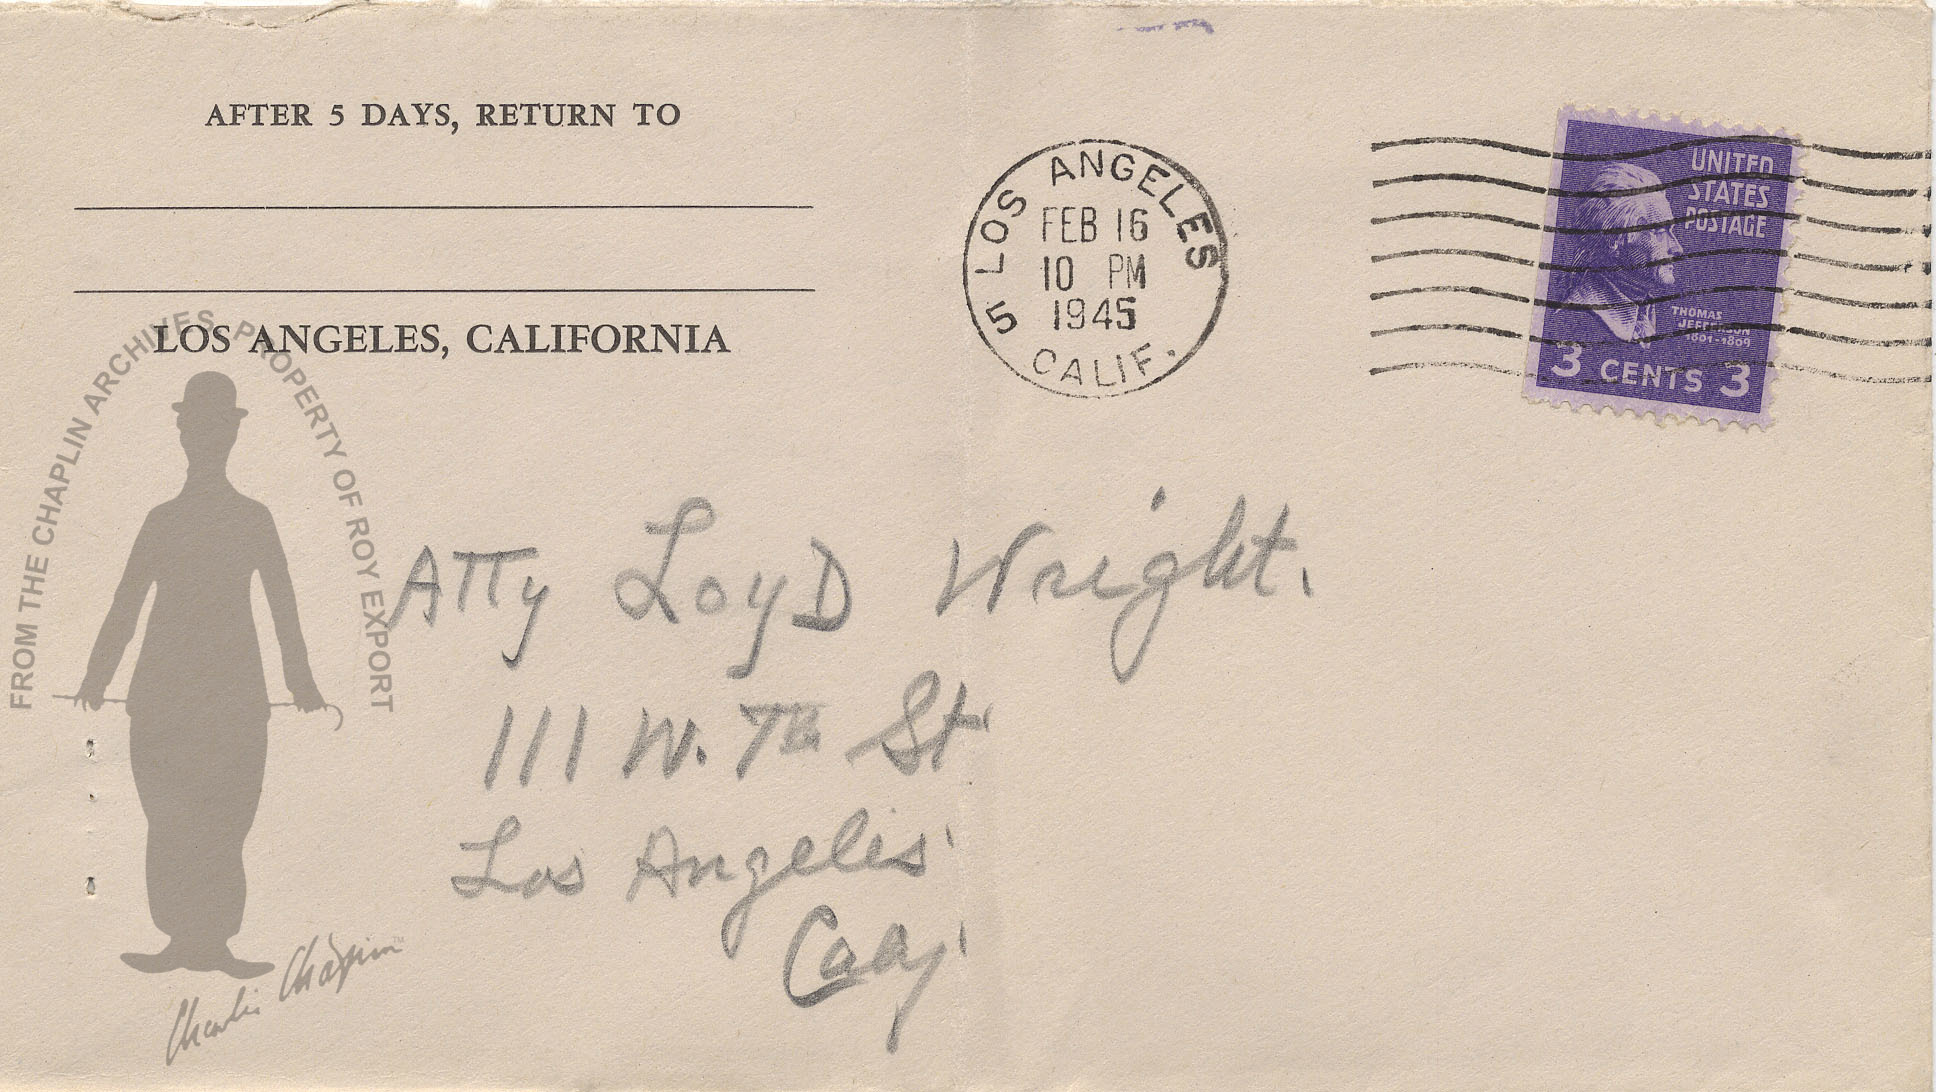 AFTER 5 DAYS, RETURN TO
LOS ANGELES, CALIFORNIA
5 LOS ANGELES
FEB 16
10 PM
1945
CALIF.
UNITED
STATES
POSTAGE
THOMAS
JEFFERSON
1801-1809
3 CENTS 3
FROM THE CHAPLIN ARCHIVES PROPERTY OF ROY EXPORT
Atty Loyd Wright.
111 W. 7th St
Los Angeles
Charlie Chaplin